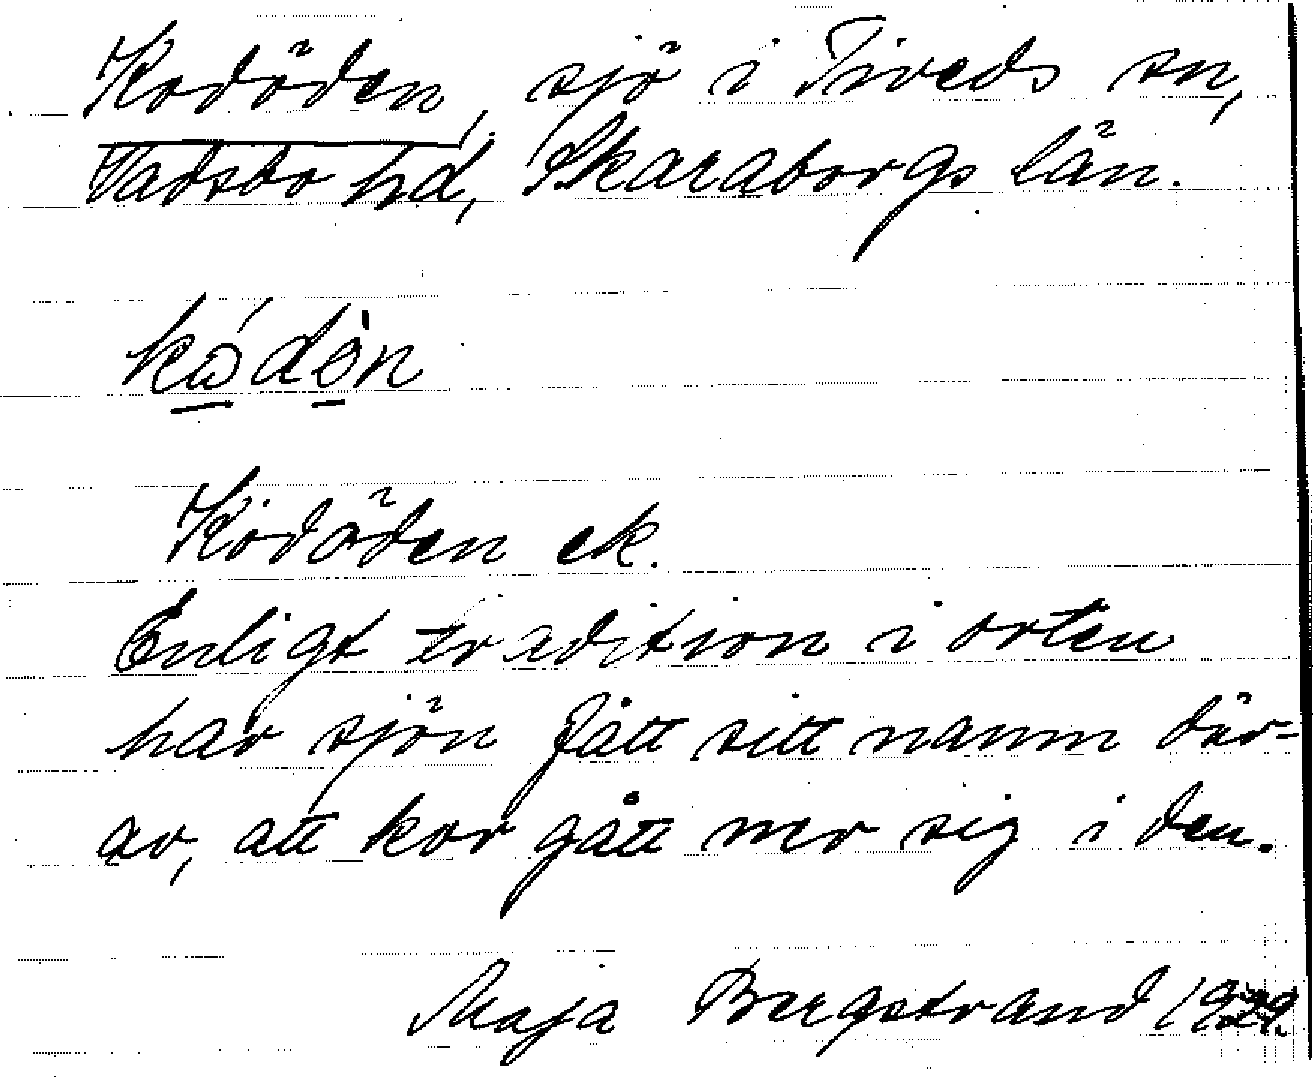 Kodöden, sjö i Tiveds sn,
Vadsbo hd, Skaraborgs län.
Kodöden ek.
Enligt tradition i orten
har sjön fått sitt namn där-
av, att kor gått ner sig i den.
Maja Bergstrand 1929.